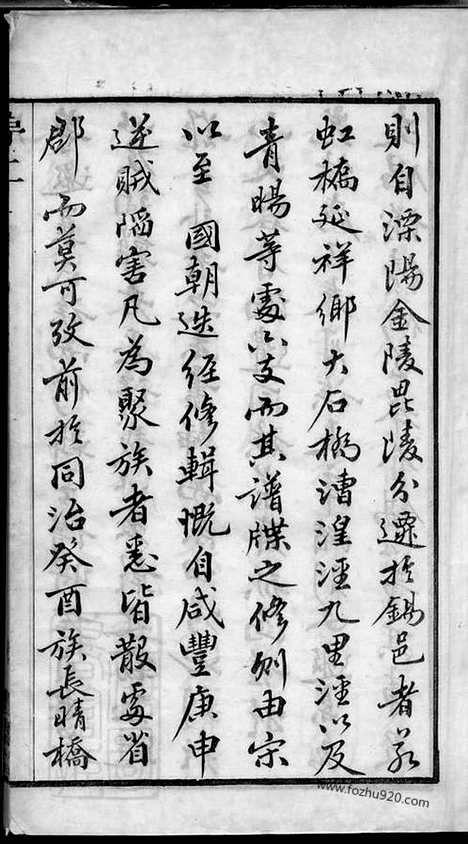 則自溧陽金陵毘陵分遷於錫邑者若
虹橋延祥鄉大石橋漕湟涇九里涇以及
青暘等處六支而其譜牒之修則由宋
以至 國朝迭經修輯慨自咸豐庚申
逆賊陷害凡為聚族者悉皆散處省
郡而莫可攷前於同治癸酉族長晴橋
www.fozhu920.com